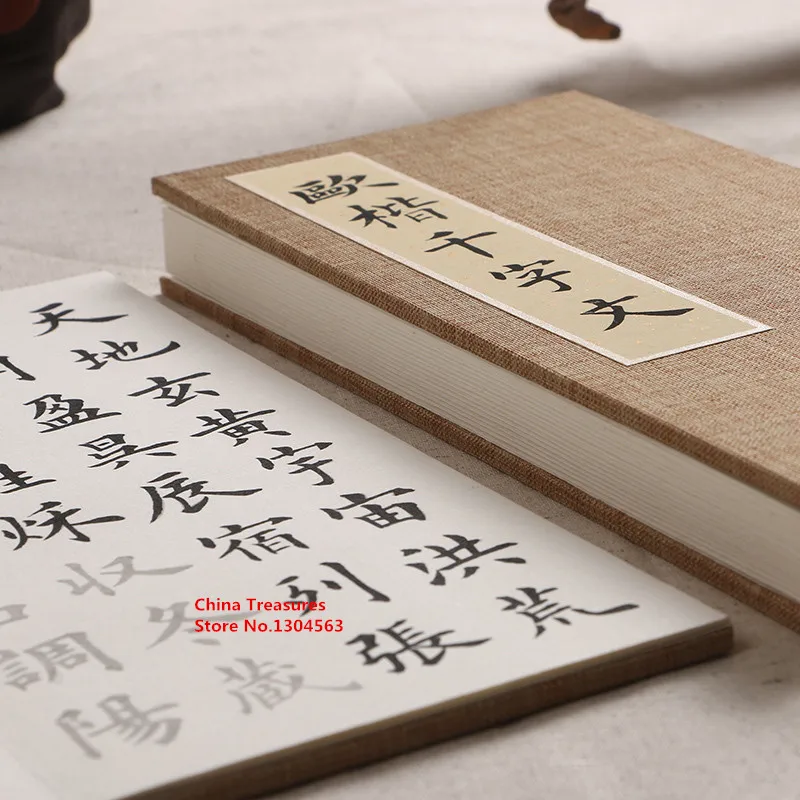 歐楷千字文
天地玄黄宇宙洪荒
盈昃辰宿列張
收冬藏
調陽
China Treasures
Store No.1304563